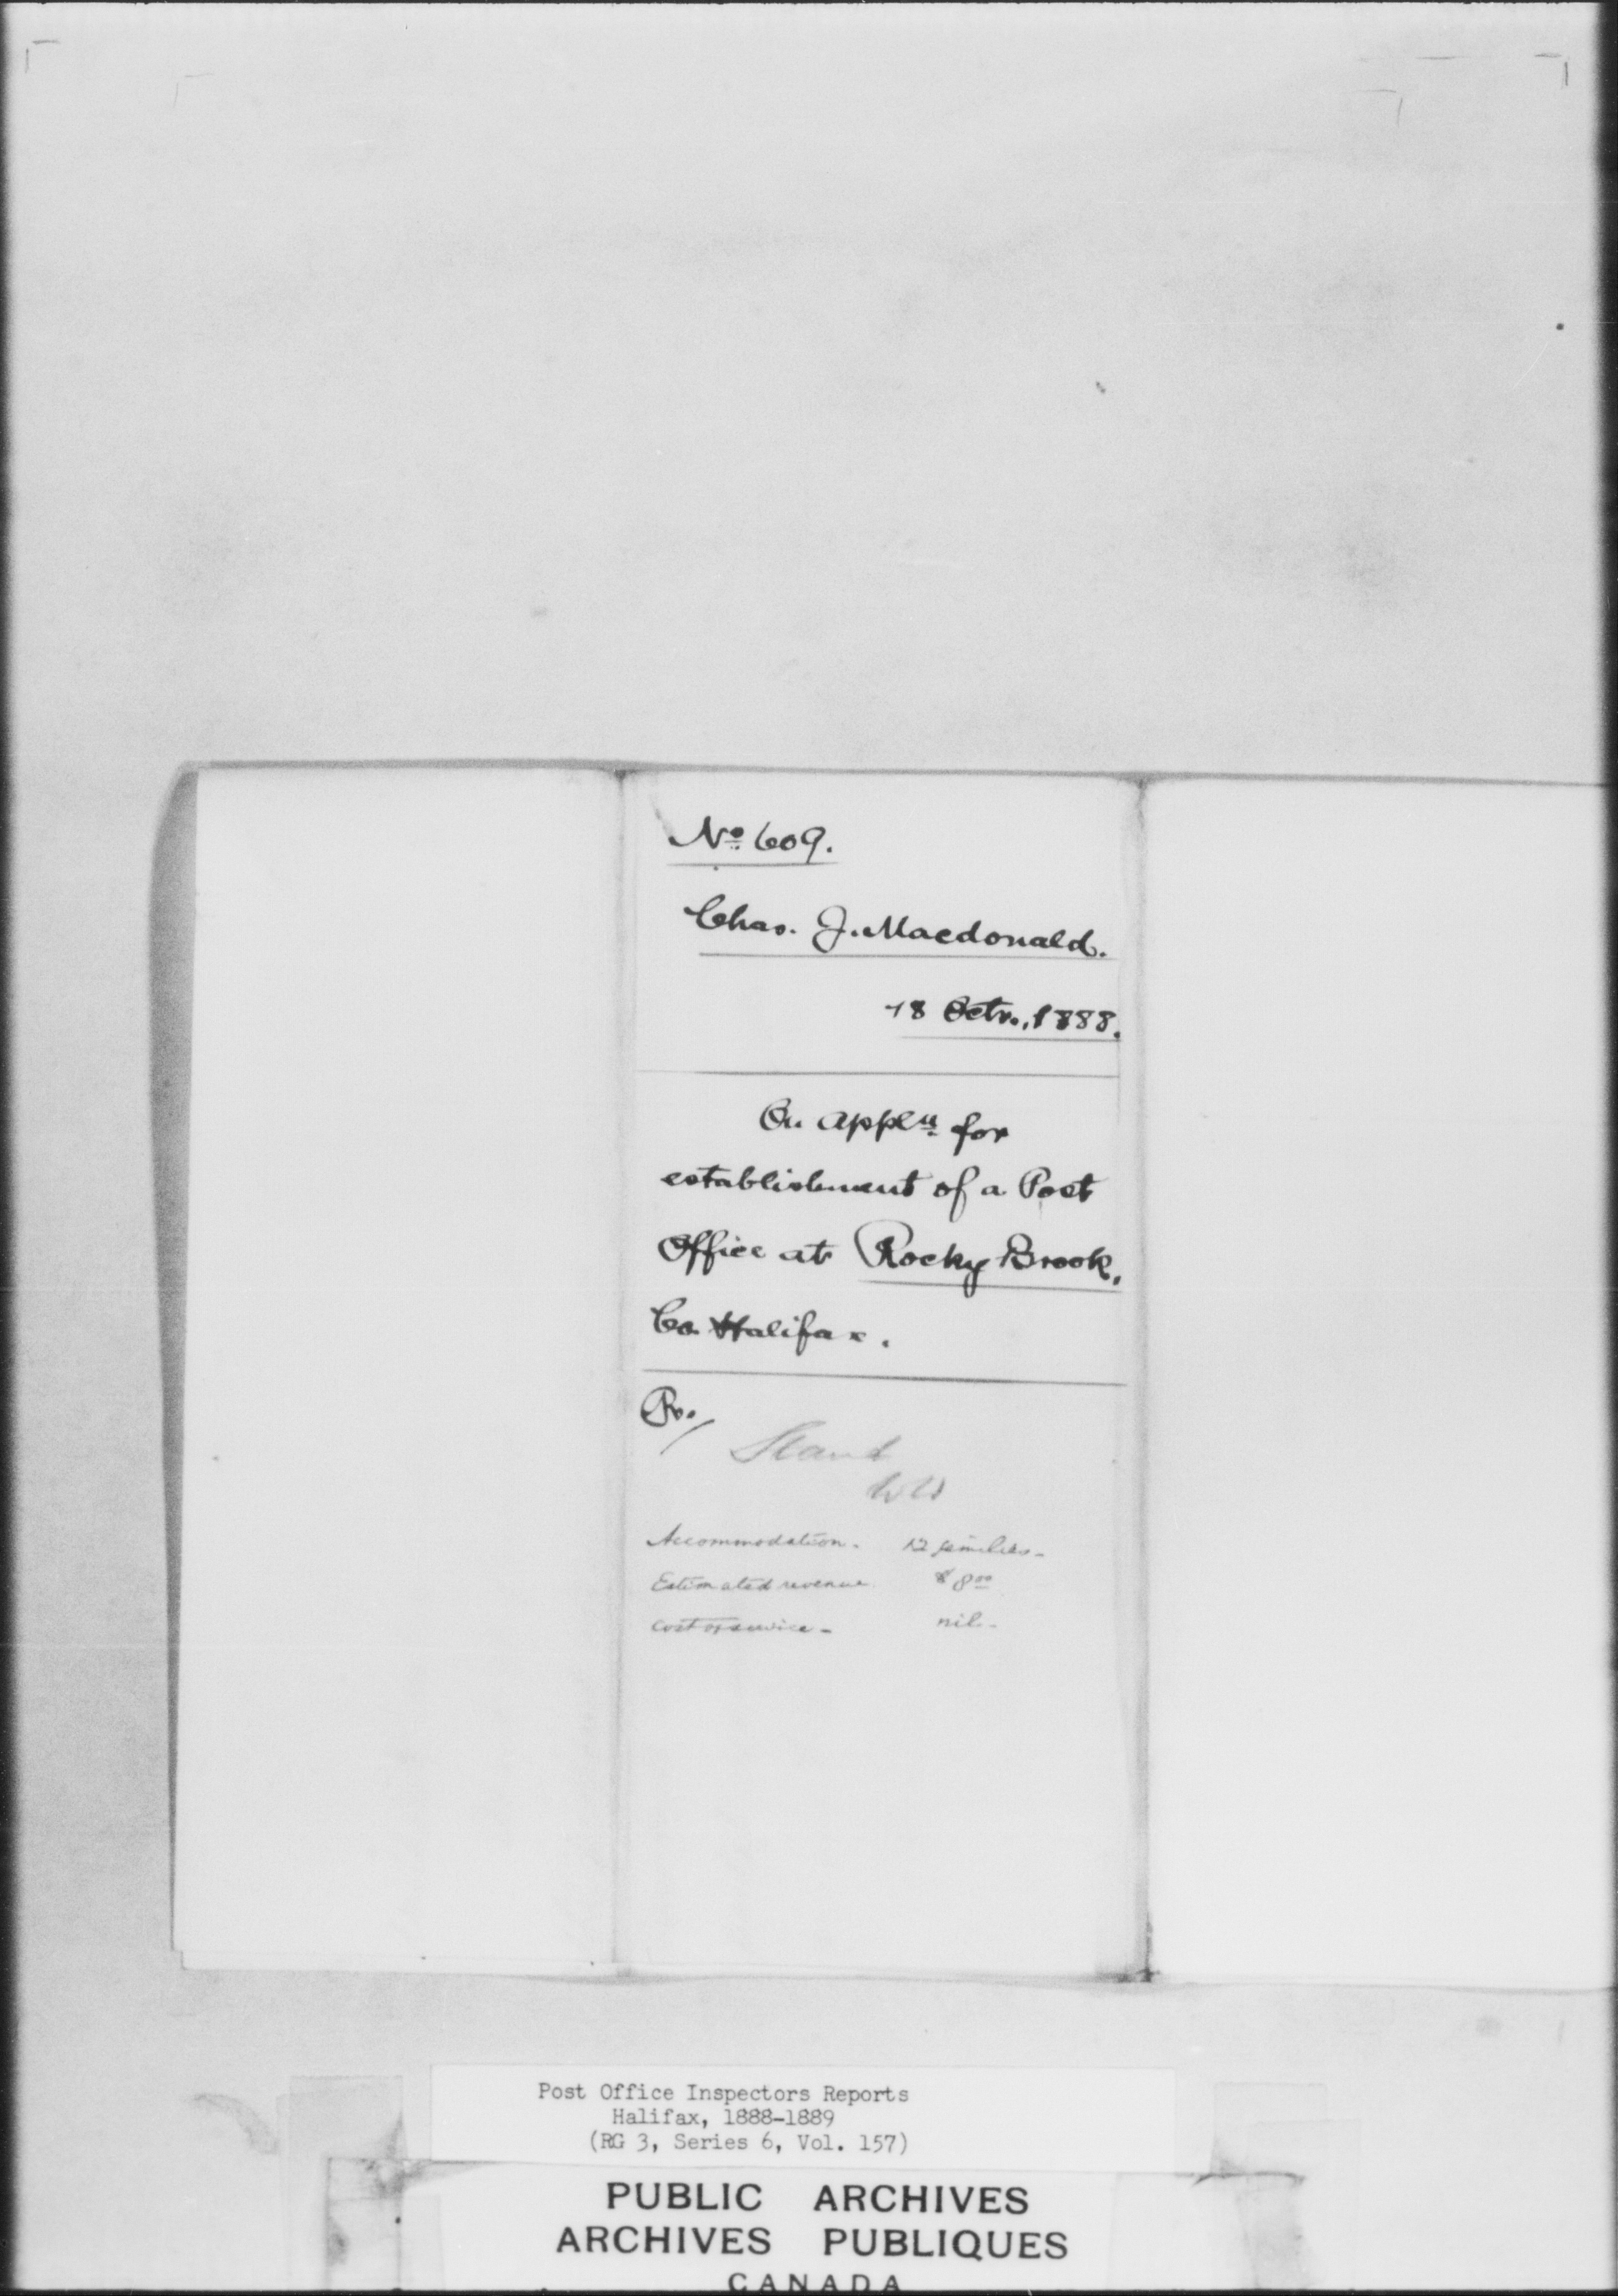 No. 609.
Chas. J. Macdonald.
18 Octr., 1888.
On appln. for
establishment of a Post
Office at Rocky Brook,
Co. Halifax.
Stand
Accommodation. 12 families-
Estimated revenue. $8 00
Cost of service- nil-
Post Office Inspectors Reports
Halifax, 1888-1889
(RG 3, Series 6, Vol. 157)
PUBLIC ARCHIVES
ARCHIVES PUBLIQUES
CANADA